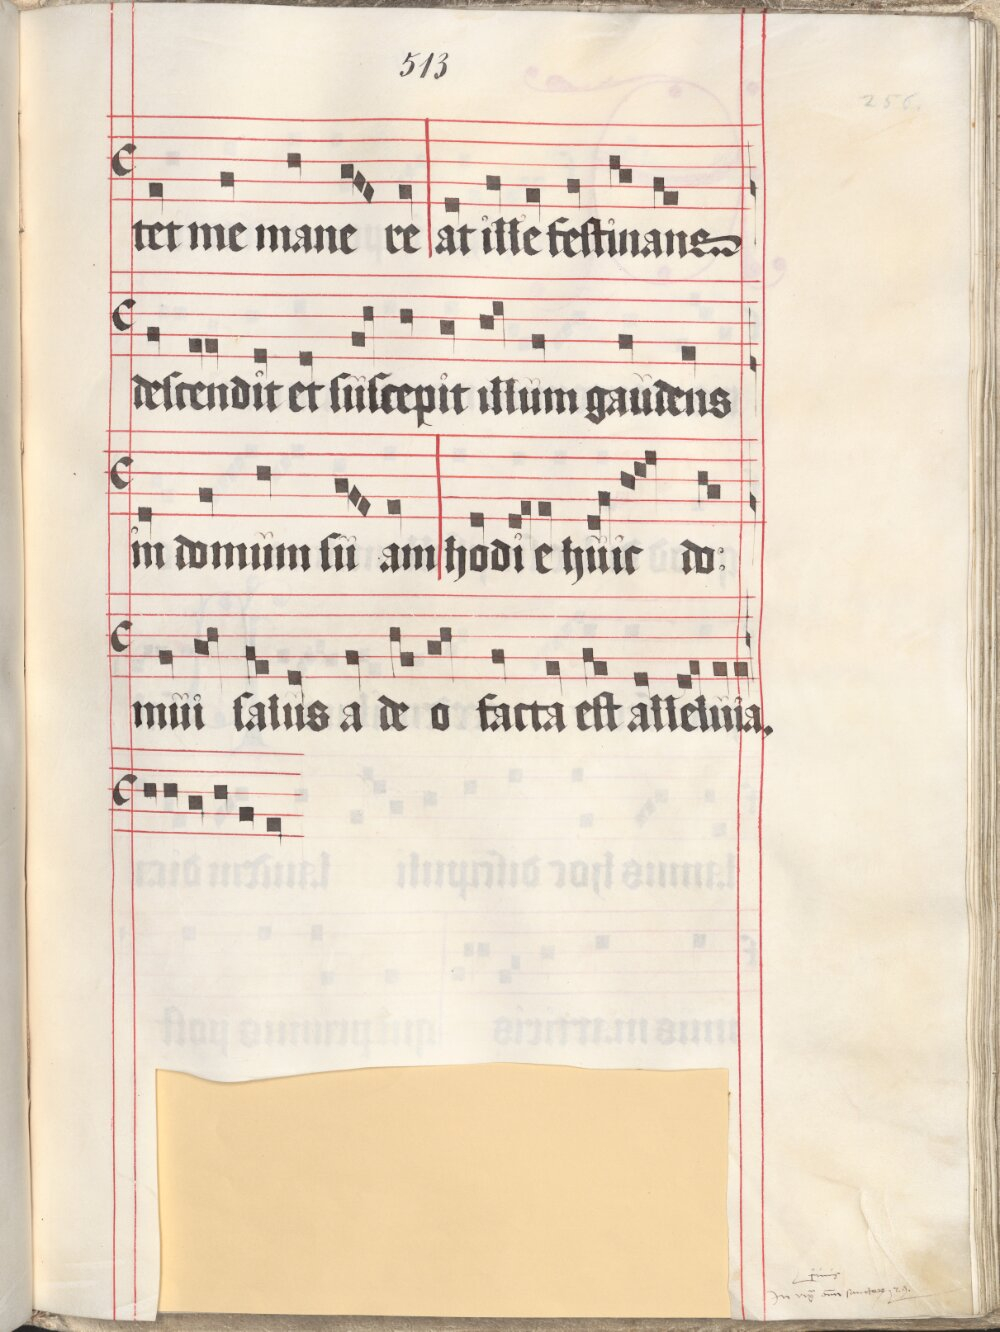 513
256.
tet me mane re at ille festinans
descendit et suscepit illum gaudens
in domum su am hodi e huic do:
mui salus a de o facta est alleluia.